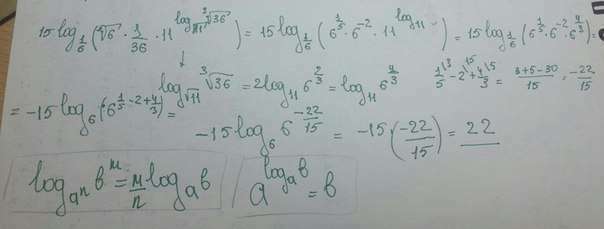 15 log_{1/6} (⁵√6 · 1/36 · 11^{log_{√11} ³√36}) = 15 log_{1/6} (6^{1/5} · 6^{-2} · 11^{log_{11}}) = 15 log_{1/6} (6^{1/5} · 6^{-2} · 6^{4/3}) =
↓
log_{√11} ³√36 = 2 log_{11} 6^{2/3} = log_{11} 6^{4/3}
1/5 - 2 + 4/3 = (3+5-30)/15 = -22/15
= -15 log_6 (6^{1/5 - 2 + 4/3}) =
-15 log_6 6^{-22/15} = -15 (-22/15) = 22
log_{aⁿ} b^m = m/n log_a b
a^{log_a b} = b